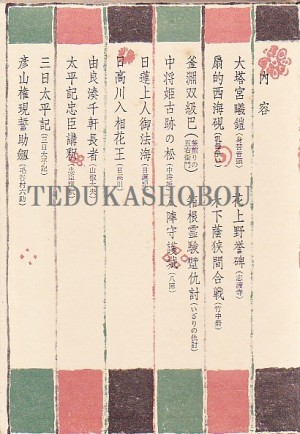 内容
大塔宮曦鎧(身替音頭) 花上野誉碑(志渡寺)
扇的西海硯(乳母争) 木下蔭狭間合戦(竹中砦)
釜淵双級巴(釜煎りの五右衛門) 箱根霊験躄仇討(いざりの仇討)
中将姫古跡の松(中将姫) 陣守護城(八陣)
日蓮上人御法海(日蓮記)
日高川入相花王(日高川)
由良湊千軒長者(山椒太夫)
太平記忠臣講釈
三日太平記(三日太平記)
彦山権現誓助剱(毛谷村六助)
TEDUKASHOBOU